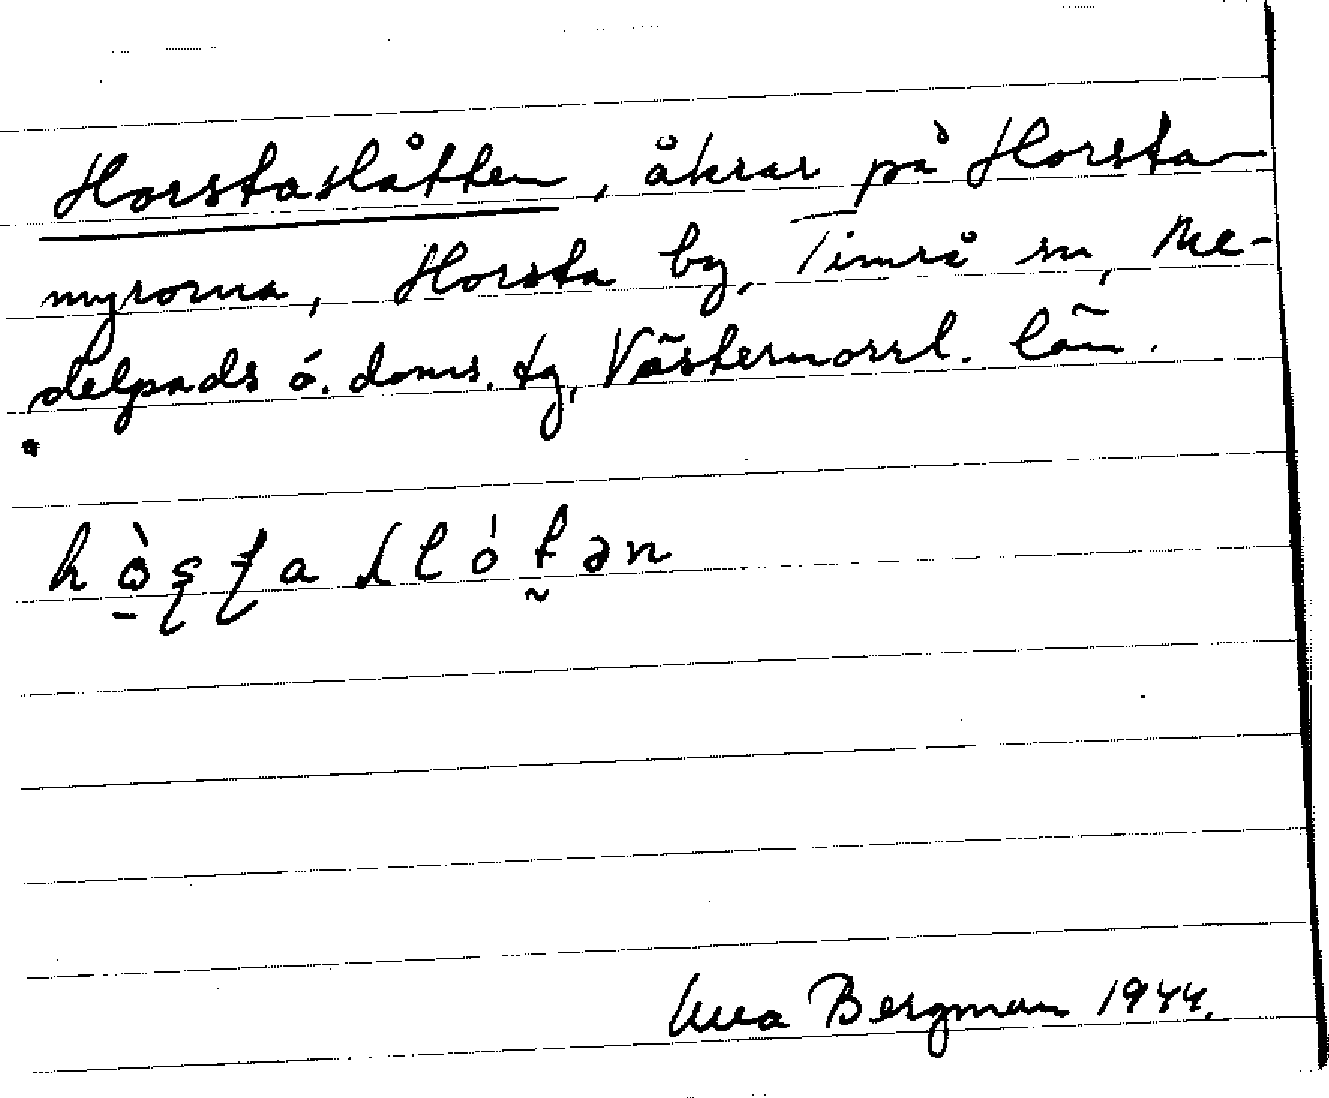 Horstaslåtten, åkrar på Horsta-
myrorna, Horsta by, Timrå sn, Me-
delpads ö. doms. tg, Västernorrl. län.
Bergman 1944.